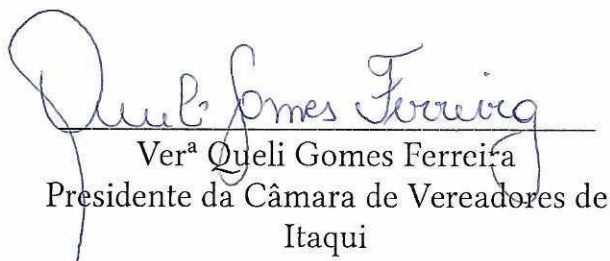 Queli Gomes Ferreira
Verª Queli Gomes Ferreira
Presidente da Câmara de Vereadores de
Itaqui